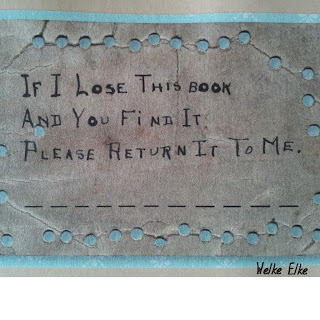 If I Lose This book
And You Find It
Please Return It To Me.
Welke Elke